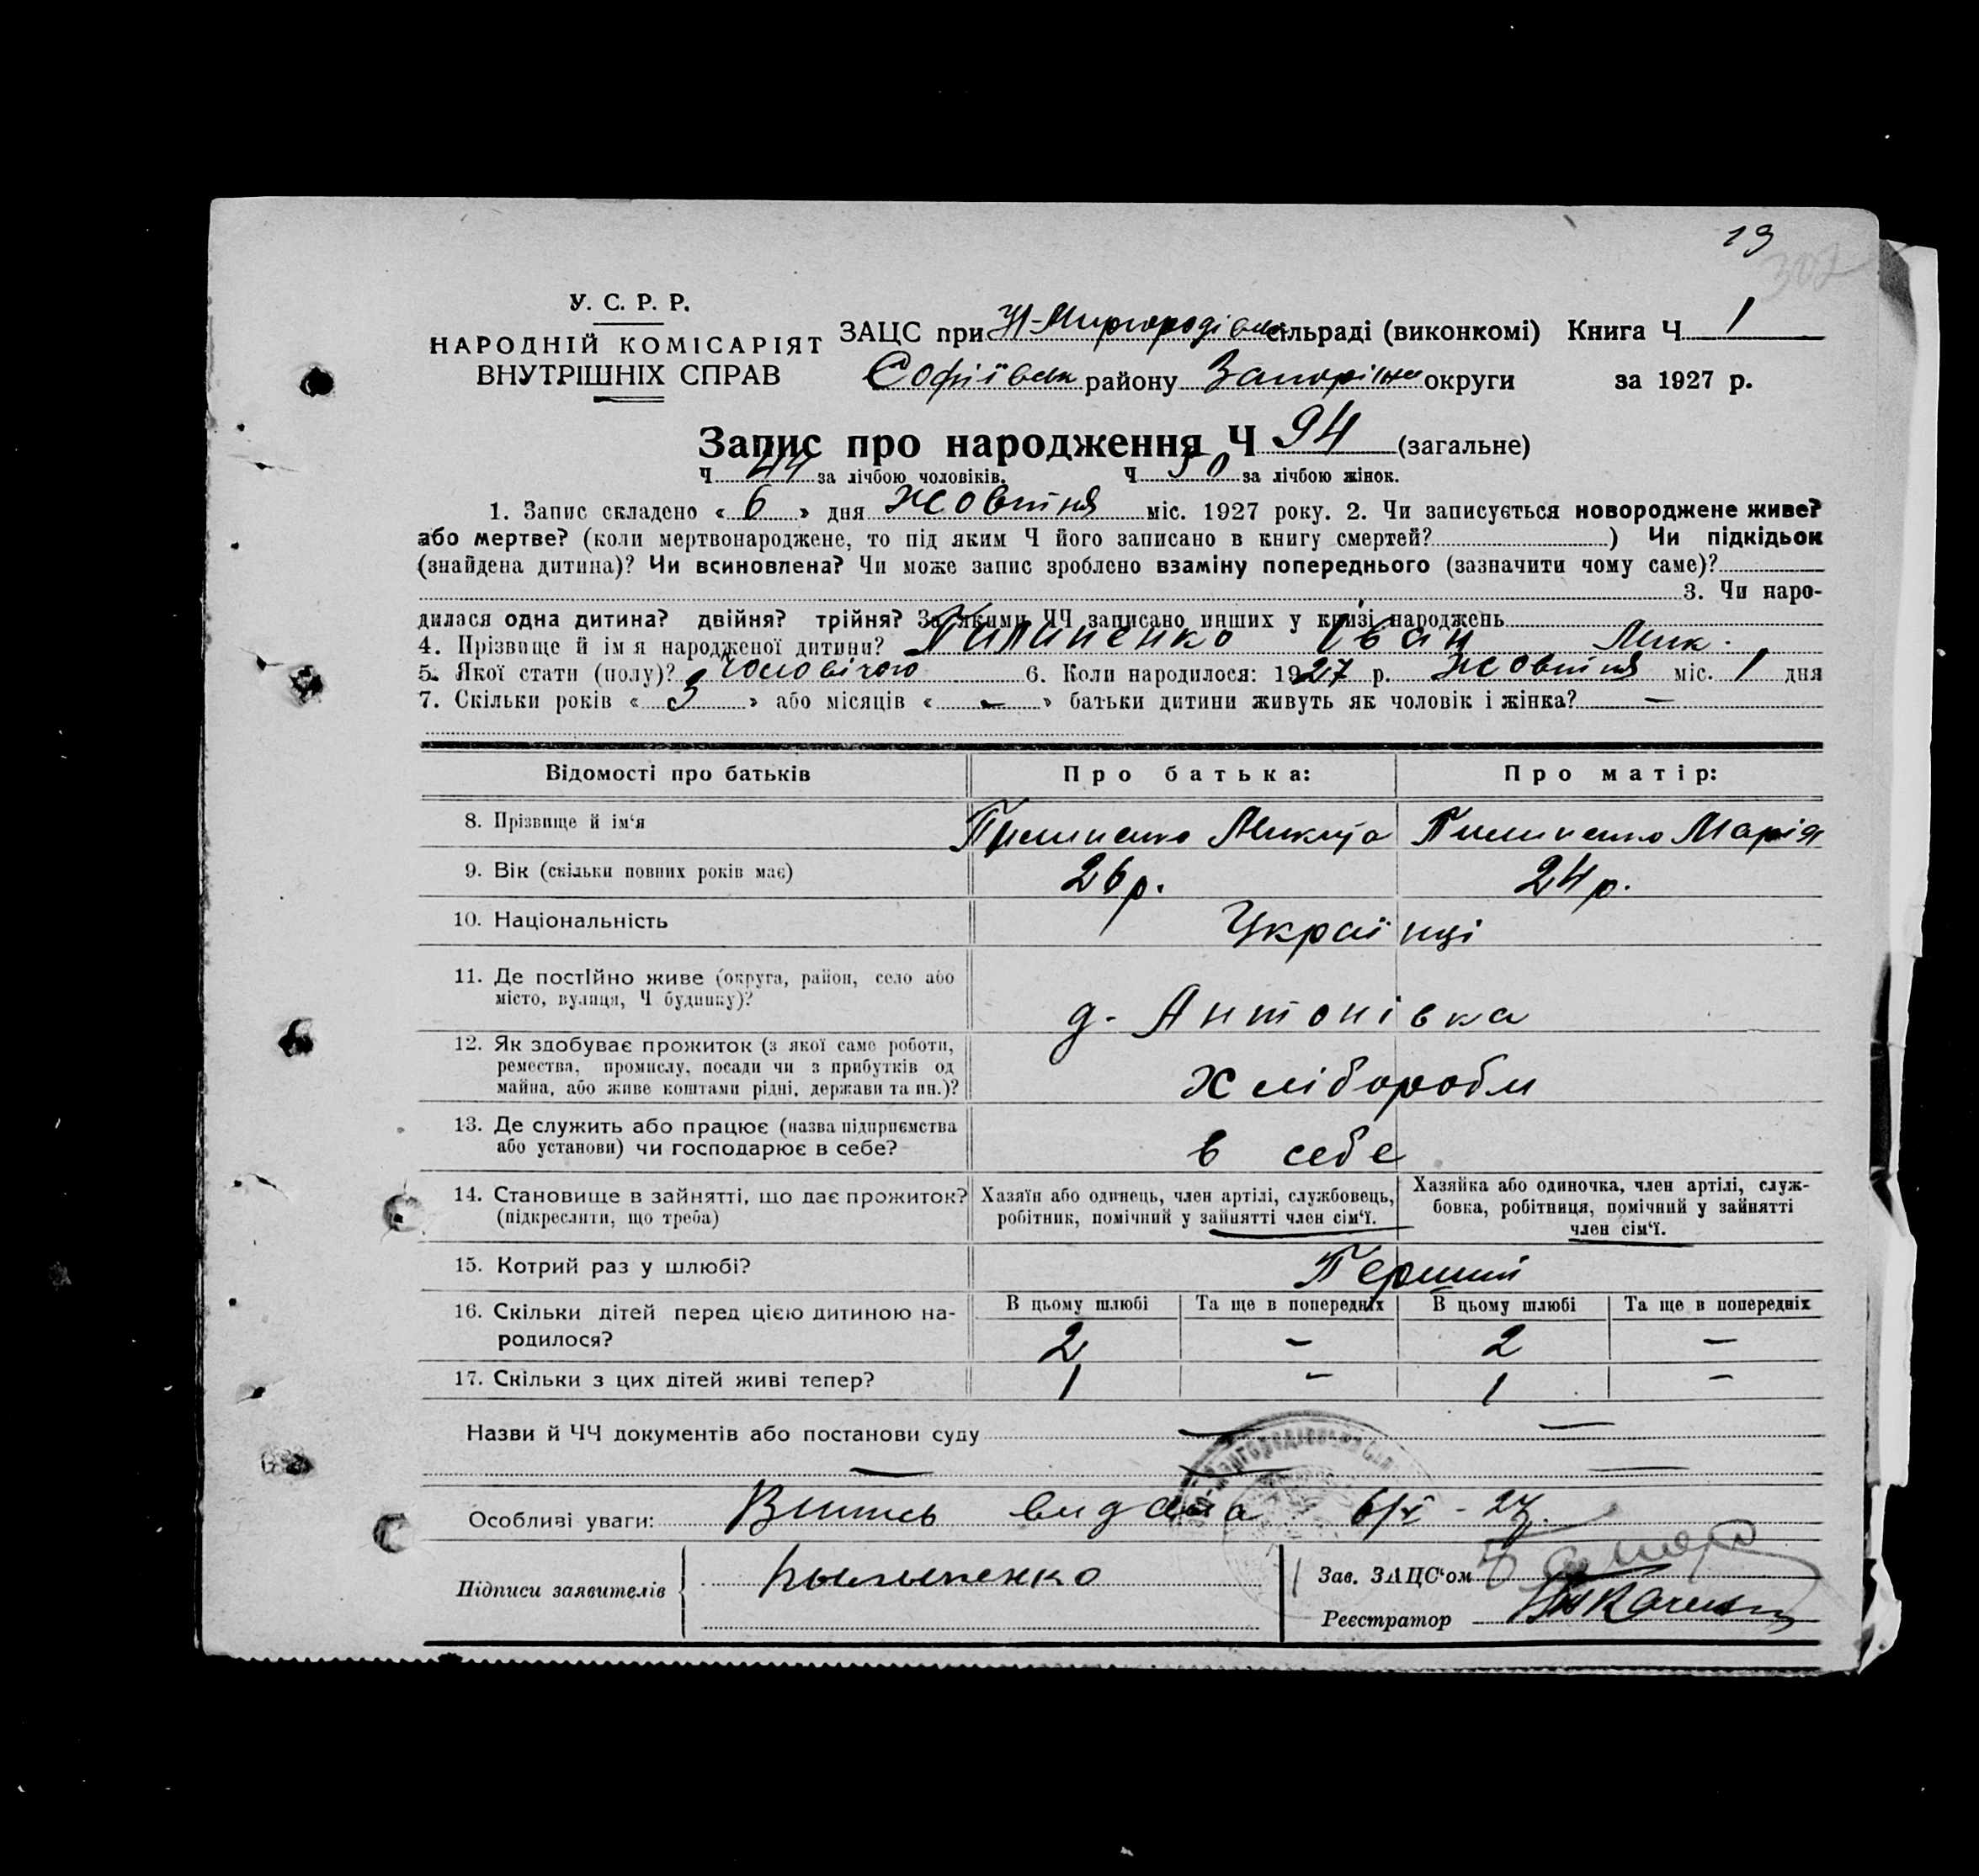 19
302
У. С. Р. Р.
НАРОДНІЙ КОМІСАРІЯТ
ВНУТРІШНІХ СПРАВ
ЗАЦС при Н-Миргородівськ сільраді (виконкомі) Книга Ч 1
Софіївськ району Запоріжс округи за 1927 р.
Запис про народження Ч 94 (загальне)
Ч 44 за лічбою чоловіків. Ч 50 за лічбою жінок.
1. Запис складено « 6 » дня Жовтня міс. 1927 року. 2. Чи записується новороджене живе?
або мертве? (коли мертвонароджене, то під яким Ч його записано в книгу смертей? ) Чи підкідьок
(знайдена дитина)? Чи всиновлена? Чи може запис зроблено взаміну попереднього (зазначити чому саме)?
3. Чи наро-
дилася одна дитина? двійня? трійня? За якими ЧЧ записано инших у книзі народжень
4. Прізвище й ім я народженої дитини? Пилипенко Іван Мик.
5. Якої стати (полу)? чоловічого 6. Коли народилося: 1927 р. Жовтня міс. 1 дня
7. Скільки років « 3 » або місяців « - » батьки дитини живуть як чоловік і жінка? —
Відомості про батьків Про батька: Про матір:
8. Прізвище й ім‘я Пилипенко Микита Пилипенко Марія
9. Вік (скільки повних років має) 26 р. 24 р.
10. Національність Українці
11. Де постійно живе (округа, район, село або
місто, вулиця, Ч будинку)? д. Антонівка
12. Як здобуває прожиток (з якої саме роботи,
ремества, промислу, посади чи з прибутків од
майна, або живе коштами рідні, держави та ин.)? Хлібороби
13. Де служить або працює (назва підприємства
або установи) чи господарює в себе? в себе
14. Становище в зайнятті, що дає прожиток?
(підкреслити, що треба)
Хазяїн або одинець, член артілі, службовець,
робітник, помічний у зайнятті член сім‘ї.
Хазяйка або одиночка, член артілі, служ-
бовка, робітниця, помічний у зайнятті
член сім‘ї.
15. Котрий раз у шлюбі? Перший
16. Скільки дітей перед цією дитиною на-
родилося?
В цьому шлюбі Та ще в попередніх В цьому шлюбі Та ще в попередніх
2 - 2 -
17. Скільки з цих дітей живі тепер? 1 - 1 -
Назви й ЧЧ документів або постанови суду — —
Особливі уваги: Витсь видана 6/X - 27.
Підписи заявителів Пылыпенко
Зав. ЗАЦС‘ом
Реєстратор